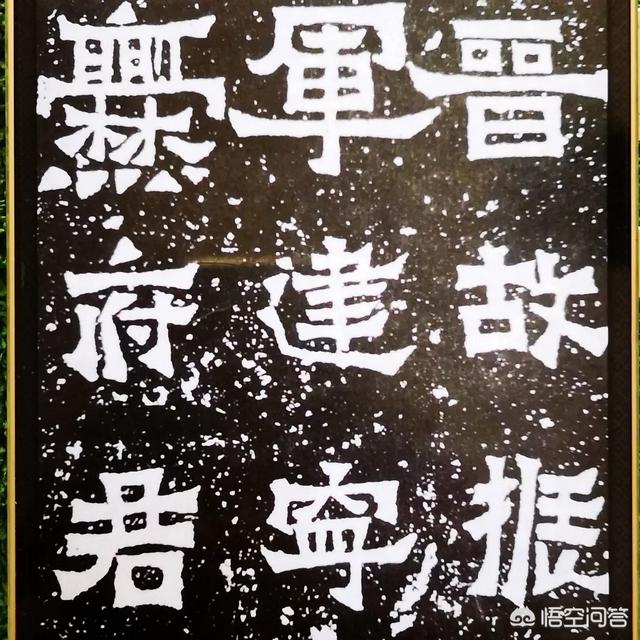 晋故振
軍建寧
爨府君
悟空问答